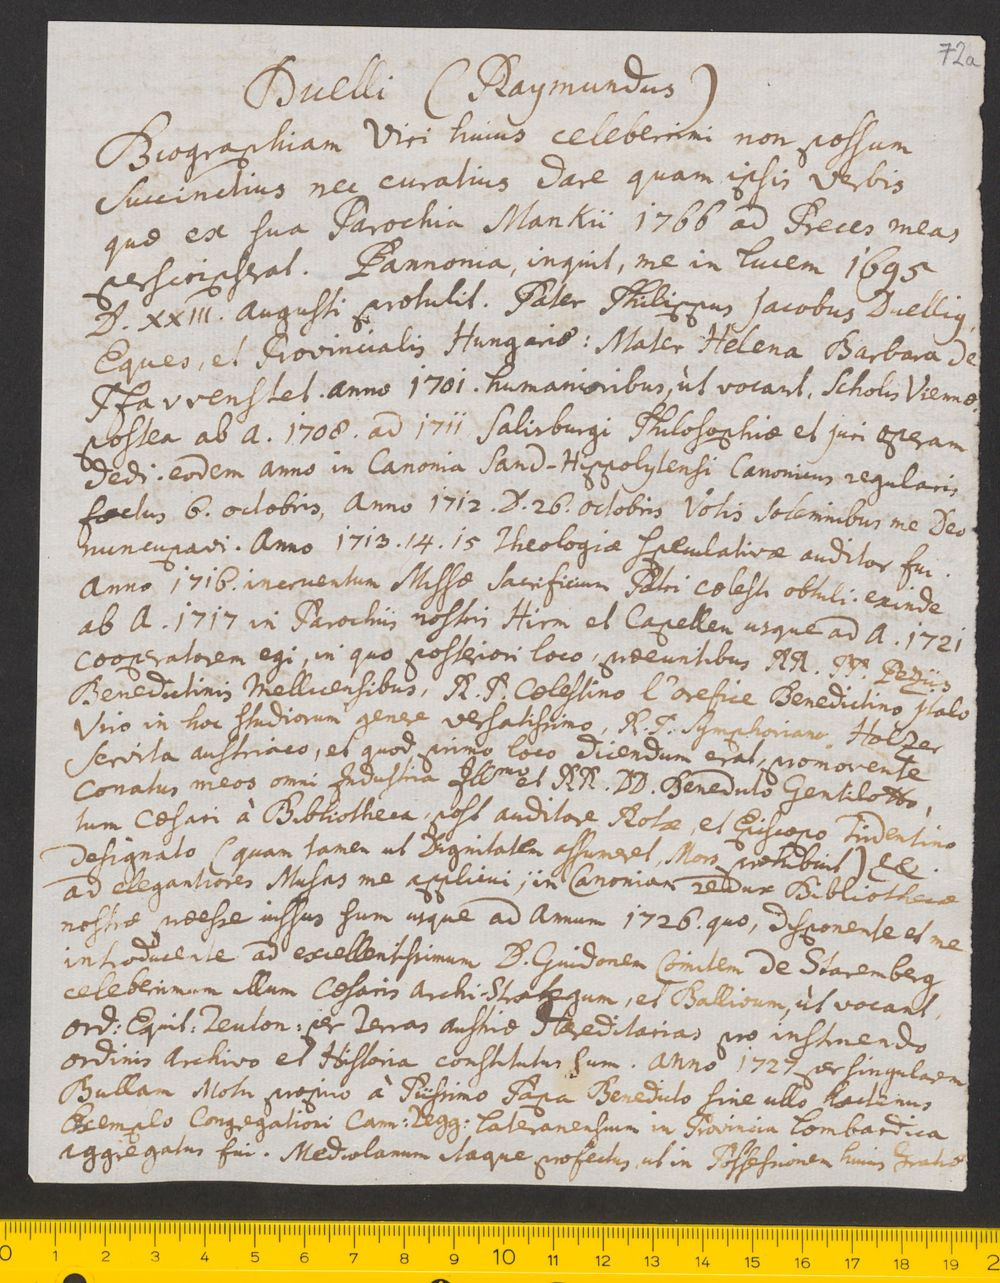 72a
Duelli (Raymundus)
Biographiam Viri huius celeberrimi non possum
succinctius nec curatius dare quam ipsis verbis
quæ ex sua Parochia Mankii 1766 ad Preces meas
perscripserat. Pannonia, inquit, me in lucem 1695
D. XXIII. Augusti protulit. Pater Philippus Jacobus Duellig,
Eques, et Provincialis Hungariæ: Mater Helena Barbara de
anno 1701. humanioribus, ùt vocant, Scholis Viennæ,
postea ab A. 1708. ad 1711 Salisburgi Philosophiæ et juri operam
Dedi. eodem anno in Canonia Sand-Hippolytensi Canonicus regularis
factus 6. octobris, Anno 1712. D. 26. octobris Votis solemnibus me Deo
nuncupavi. Anno 1713. 14. 15 Theologiæ speculativæ auditor fui.
Anno 1716. incruentum Missæ sacrificium Patri cœlesti obtuli. exinde
ab A. 1717 in Parochiis nostris Hirm et Capellen usque ad A. 1721
cooperatorem egi, in quo posteriori loco, præeuntibus RR. PP. Peziis
Benedictinis Mellicensibus, R. P. Cœlestino l'orefice Benedictino Italo
Viro in hoc studiorum genere versatissimo, R. P. Symphoriano Holzer
Servita austriaco, et quod primo loco dicendum erat, promovente
Conatus meos omni Industria Illmo et RR. DD. Benedicto Gentilotto,
tum Cæsari à Bibliotheca, post auditore Rotæ, et Episcopo Tridentino
Designato (quam tamen ut Dignitatem assumeret, Mors prohibuit)
ad elegantiores Musas me applicui; in Canoniam redux Bibliothecæ
nostræ præesse iussus sum usque ad Annum 1726. quo, disponente et me
introducente ad excellentissimum D. Guidonem Comitem de Staremberg
celeberrimum illum Cæsaris Archi-Strategum, et Ballivum, ùt vocant,
ord: Equit: Teuton: per Terras Austriæ Hæreditarias pro instruendo
ordinis Archivo et Historia constitutus sum. Anno 1727 per singularem
Bullam Motu proprio à Piissimo Papa Benedicto sine ullo hactenus
Exemplo Congregationi Cann: Regg: Lateranensium in Provincia Lombardica
aggregatus fui. Mediolanum itaque profectus, ut in Possessionem huius Gratiæ